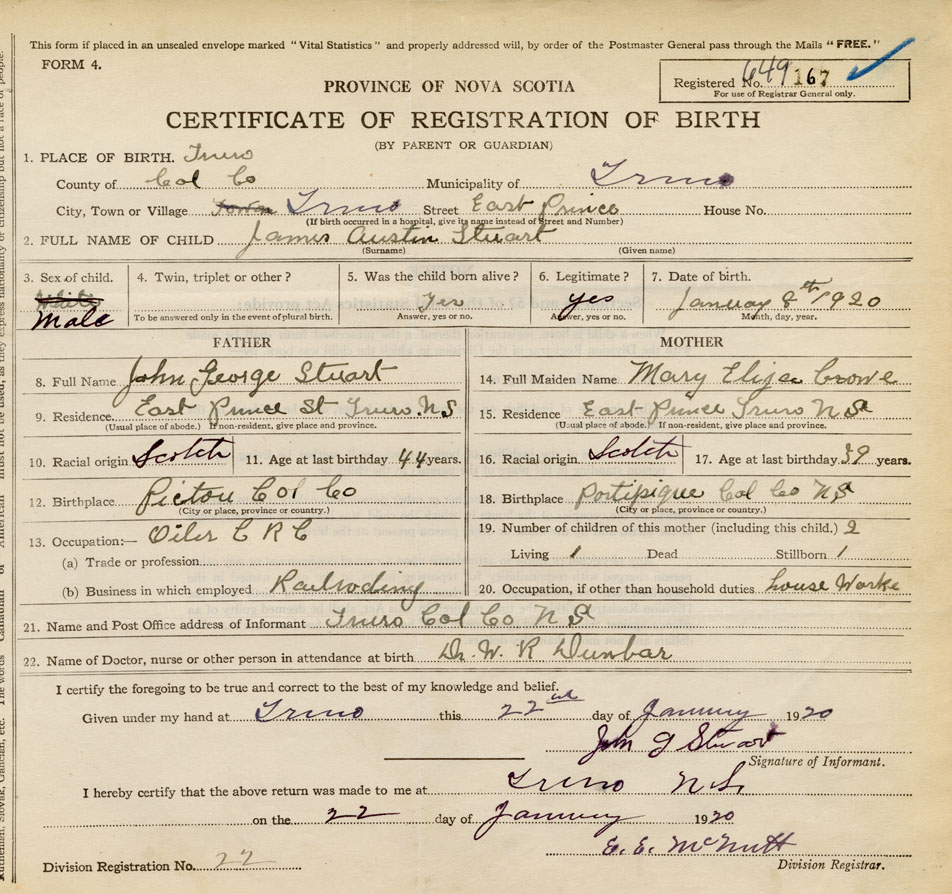 This form if placed in an unsealed envelope marked "Vital Statistics" and properly addressed will, by order of the Postmaster General pass through the Mails "FREE."
FORM 4.
Registered No. 649 167
For use of Registrar General only.
PROVINCE OF NOVA SCOTIA
CERTIFICATE OF REGISTRATION OF BIRTH
(BY PARENT OR GUARDIAN)
1. PLACE OF BIRTH. Truro
County of Col Co Municipality of Truro
City, Town or Village Town Truro Street East Prince House No.
(If birth occurred in a hospital, give its name instead of Street and Number)
2. FULL NAME OF CHILD James Austin Stuart
(Surname) (Given name)
3. Sex of child. White Male
4. Twin, triplet or other?
To be answered only in the event of plural birth.
5. Was the child born alive? Yes
Answer, yes or no.
6. Legitimate? yes
Answer, yes or no.
7. Date of birth. January 8th 1920
Month, day, year.
FATHER
8. Full Name John George Stuart
9. Residence. East Prince St Truro. N S
(Usual place of abode.) If non-resident, give place and province.
10. Racial origin Scotch 11. Age at last birthday 44 years.
12. Birthplace Pictou Col Co
(City or place, province or country.)
13. Occupation:— Oiler C R C
(a) Trade or profession
(b) Business in which employed Railroding
MOTHER
14. Full Maiden Name Mary Eliza Crowe
15. Residence East Prince Truro N S
(Usual place of abode.) If non-resident, give place and province.
16. Racial origin Scotch 17. Age at last birthday 39 years.
18. Birthplace Portipique Col Co N S
(City or place, province or country.)
19. Number of children of this mother (including this child.) 2
Living 1 Dead Stillborn 1
20. Occupation, if other than household duties house Worke
21. Name and Post Office address of Informant Truro Col Co N S
22. Name of Doctor, nurse or other person in attendance at birth Dr. W. R Dunbar
I certify the foregoing to be true and correct to the best of my knowledge and belief.
Given under my hand at Truro this 22nd day of January 1920
John G Stuart
Signature of Informant.
I hereby certify that the above return was made to me at Truro N S.
on the 22 day of January 1920
E. E. McNutt
Division Registration No. 22 Division Registrar.